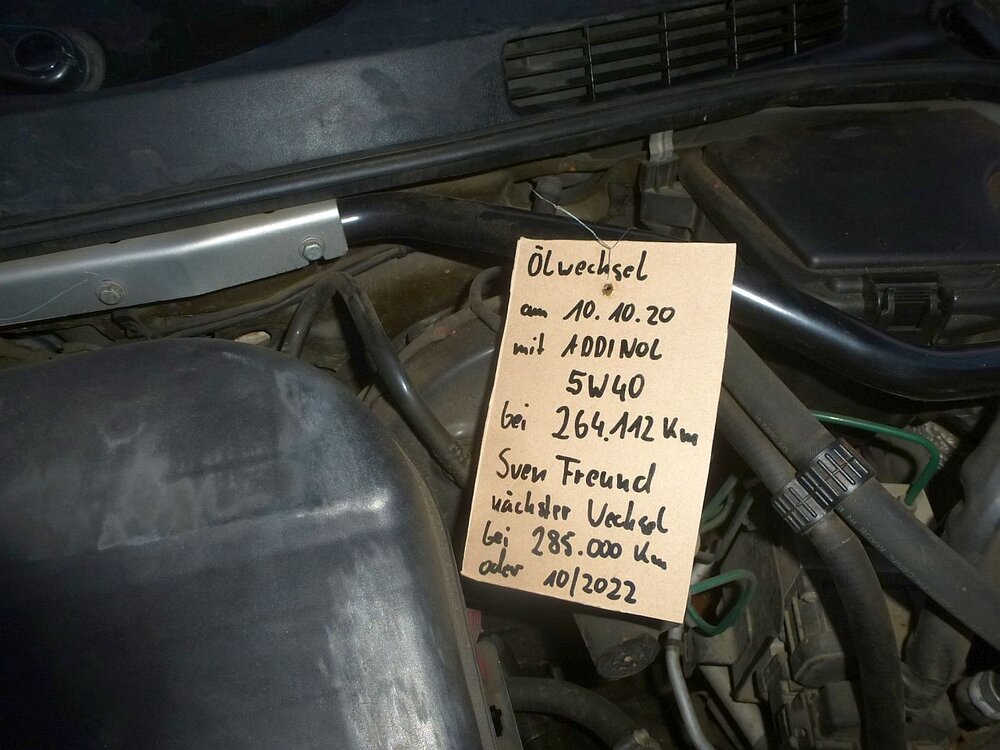 Ölwechsel
am 10.10.20
mit ADDINOL
5W40
bei 264.112 Km
Sven Freund
nächster Wechsel
bei 285.000 Km
oder 10/2022